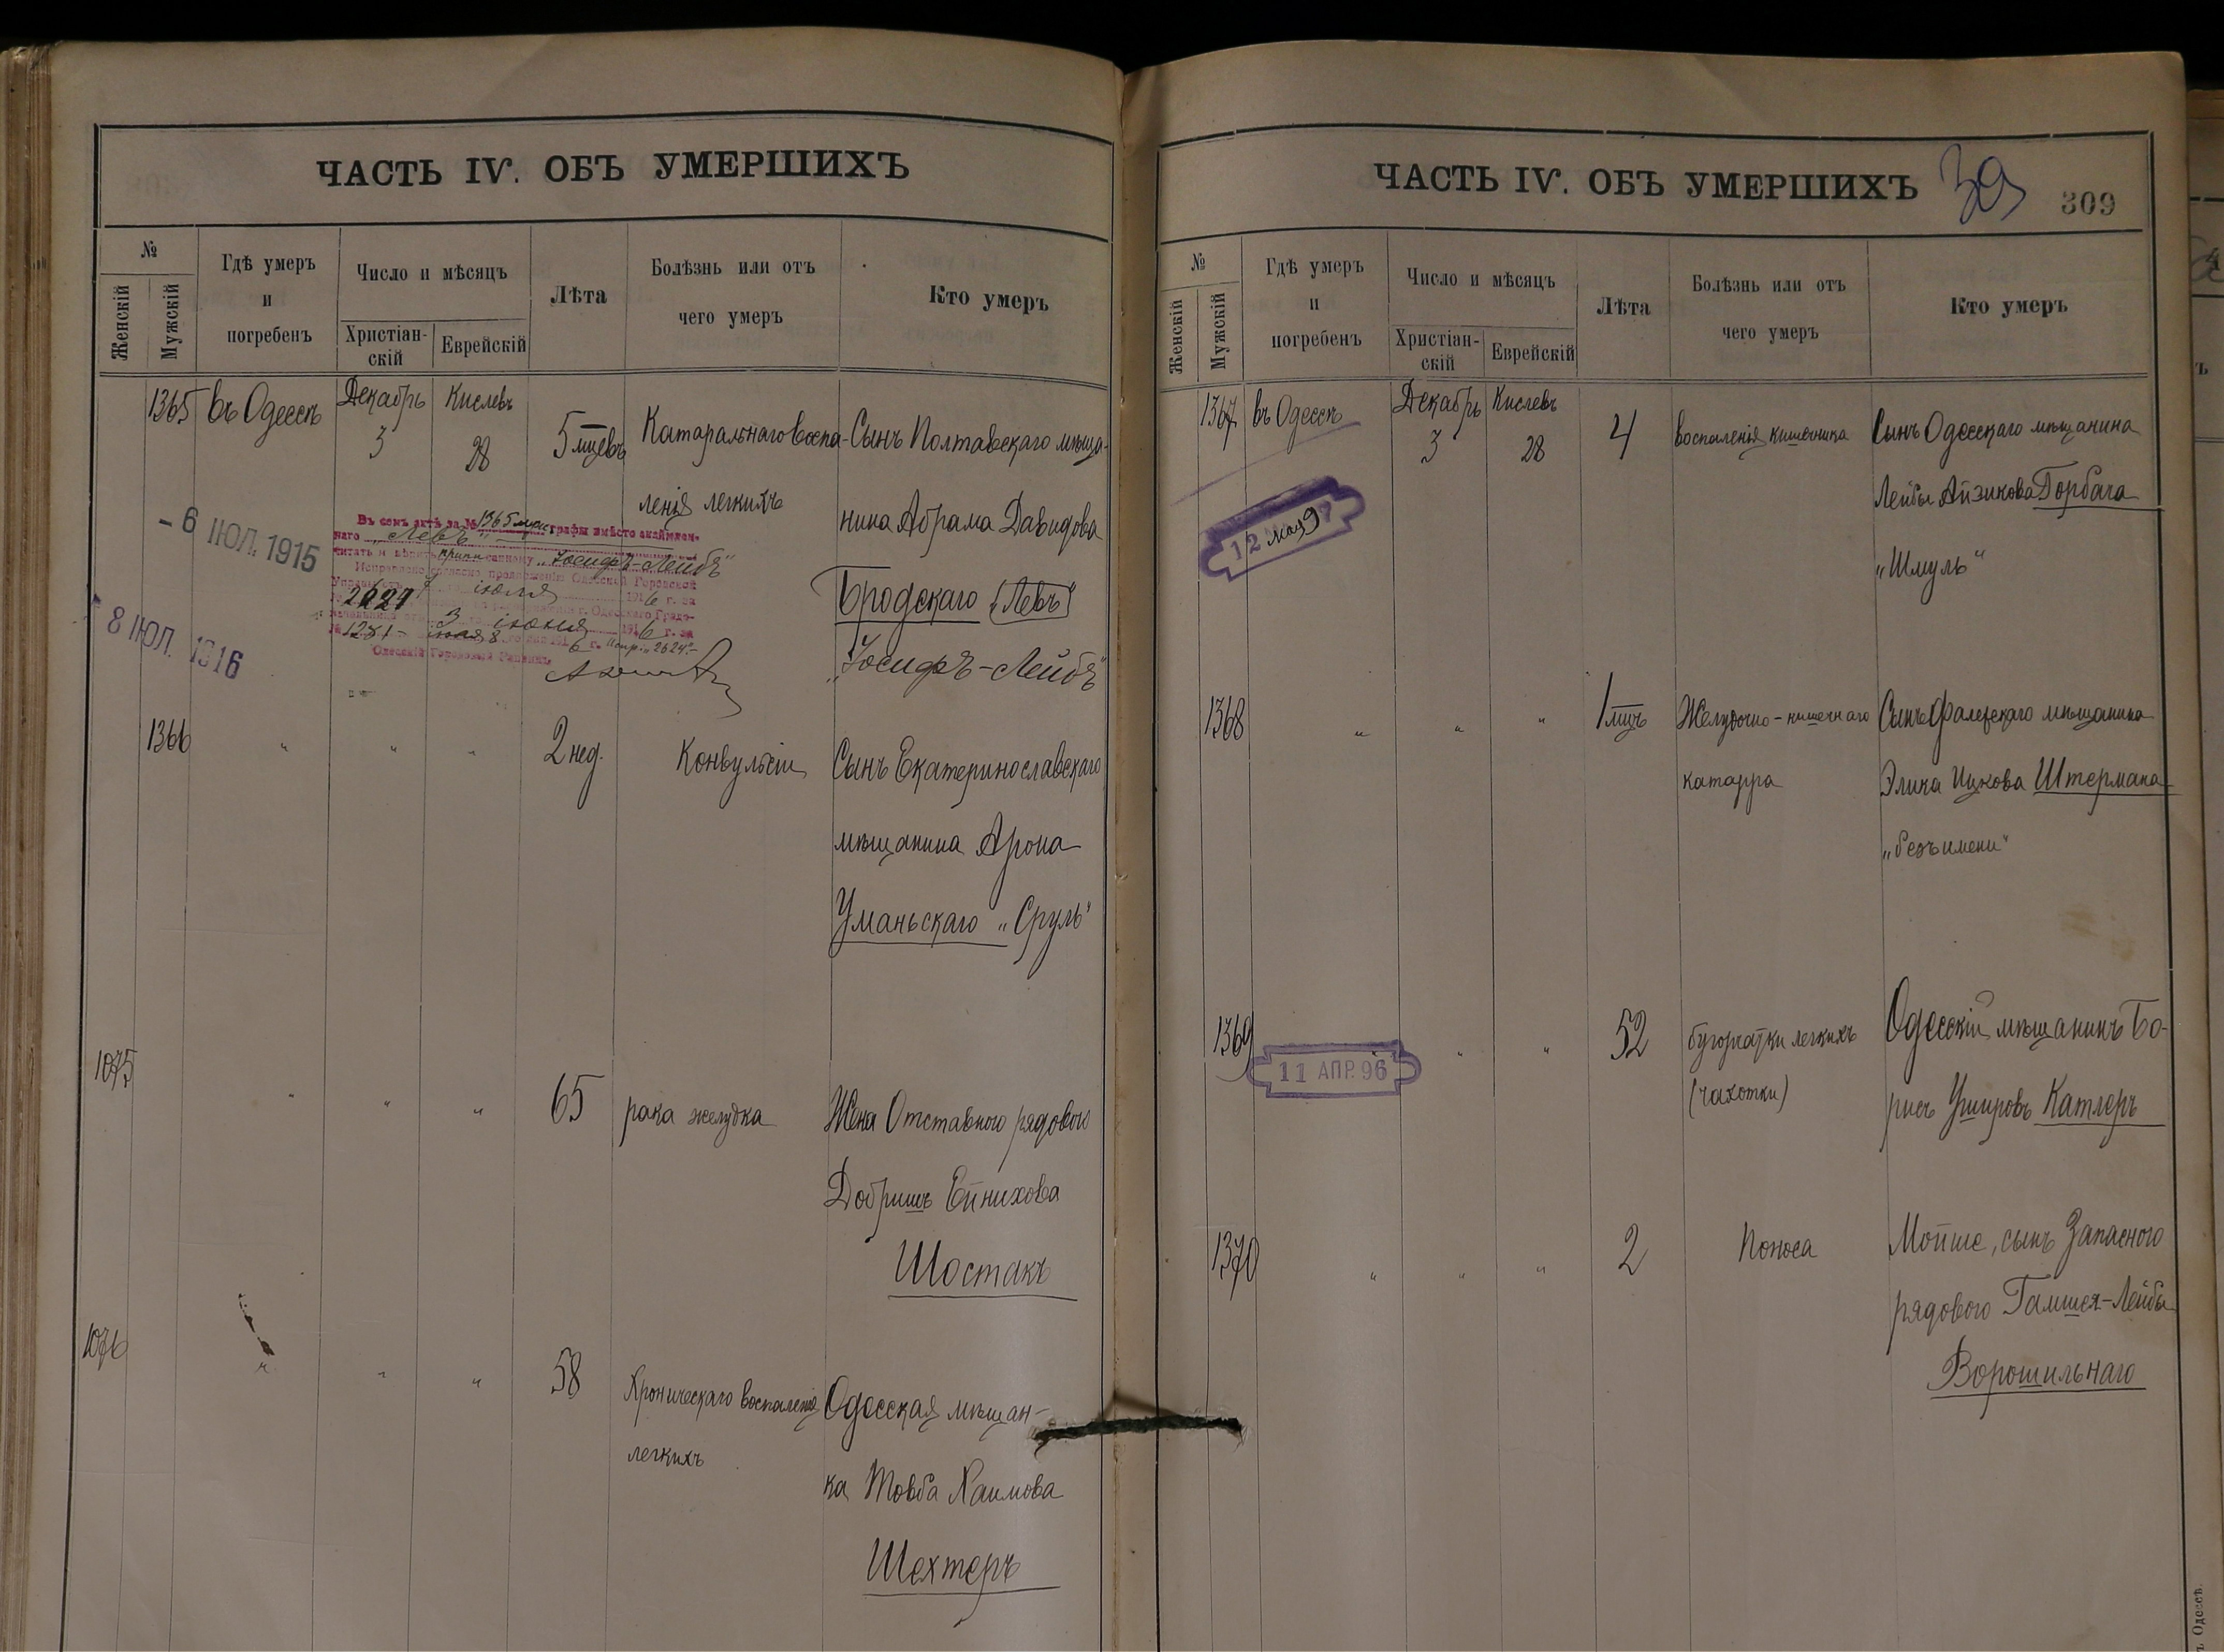 ЧАСТЬ IV. ОБЪ УМЕРШИХЪ
№
Женскій
Мужскій
Гдѣ умеръ
и
погребенъ
Число и мѣсяцъ
Христіан-
скій
Еврейскій
Лѣта
Болѣзнь или отъ
чего умеръ
Кто умеръ
1365
въ Одессѣ
Декабрь
3
Кислевъ
28
5 мцевъ
Катаральнаго воспа-
ленія легкихъ
Сынъ Полтавскаго мѣща-
нина Абрама Давидова
Бродскаго „Левъ"
„Іосифъ-Лейбъ"
- 6 ІЮЛ. 1915
8 ІЮЛ. 1916
Въ семъ актѣ за № 1365 муж. графы вмѣсто
наго „Левъ"
читать и „Іосифъ-Лейбъ"
Одесской Городской
Управы іюля 1916 г. за
№ 2624 г. Одесскаго Градо-
начальника отъ 3 іюня 1916 г. за
№ 1231
Одесскій Городовой Раввинъ
1366
"
"
"
2 нед.
Конвульсіи
Сынъ Екатеринославскаго
мѣщанина Арона
Уманьскаго „Сруль"
1075
"
"
"
65
рака желудка
Жена Отставного рядового
Добришъ Ейнихова
Шостакъ
1076
"
"
"
58
Хроническаго воспаленія
легкихъ
Одесская мѣщан-
ка Товба Хаимова
Шехтеръ
ЧАСТЬ IV. ОБЪ УМЕРШИХЪ
309
№
Женскій
Мужскій
Гдѣ умеръ
и
погребенъ
Число и мѣсяцъ
Христіан-
скій
Еврейскій
Лѣта
Болѣзнь или отъ
чего умеръ
Кто умеръ
1367
въ Одессѣ
Декабрь
3
Кислевъ
28
4
воспаленія кишечника
Сынъ Одесскаго мѣщанина
Лейбы Айзикова Горбача
„Шмуль"
12 мая 9
1368
"
"
"
1 мцъ
Желудочно-кишечнаго
катарра
Сынъ Фалешскаго мѣщанина
Элика Ицкова Штермана
„безъ имени"
1369
11 АПР. 96
"
"
52
бугорчатки легкихъ
(чахотки)
Одесскій мѣщанинъ Бо-
рисъ Ушировъ Катлеръ
1370
"
"
"
2
Поноса
Мойше, сынъ Запасного
рядового Гамшея-Лейбы
Ворошильнаго